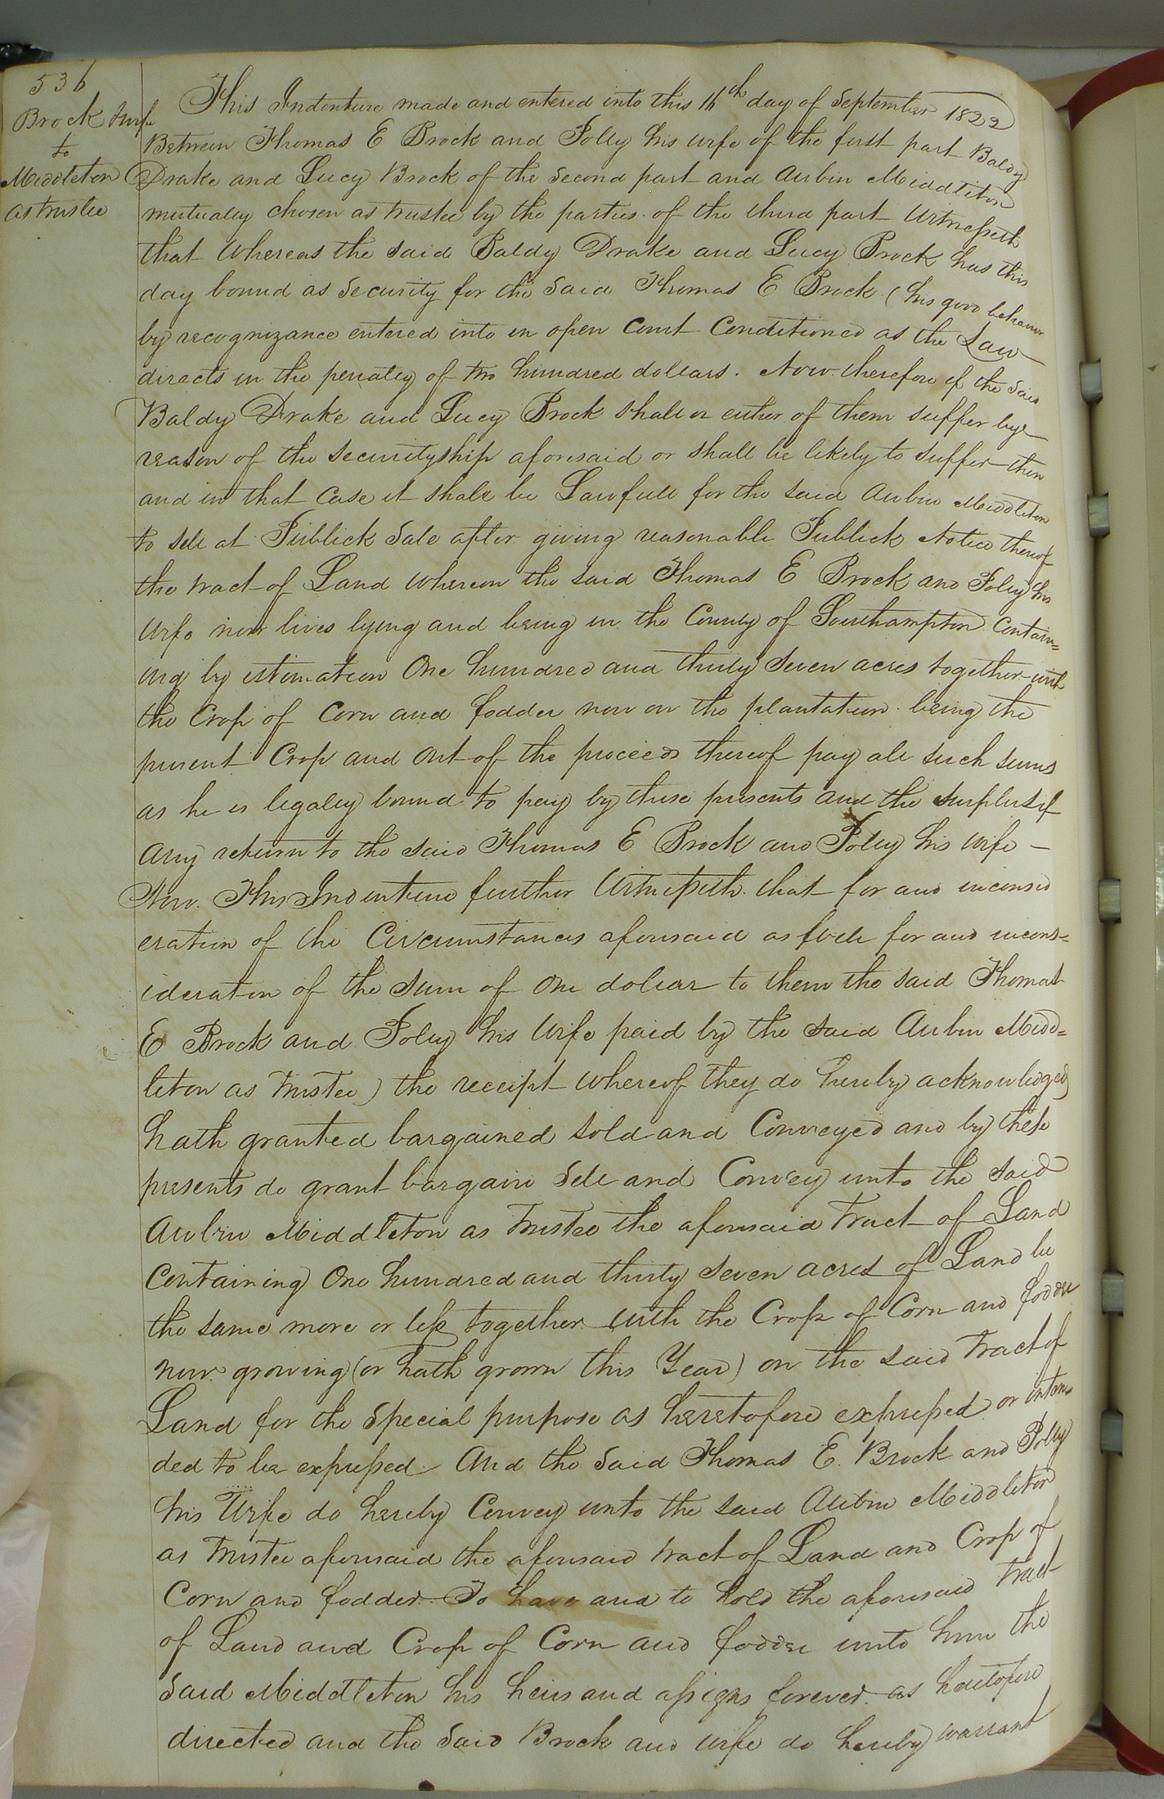 536
Brock & wife
to
Middleton
as trustee
This Indenture made and entered into this 16th day of September 1822
Between Thomas E Brock and Polly his wife of the first part Baldy
Drake and Lucy Brock of the Second part and Aubin Middleton
mutualy chosen as trustee by the parties of the third part Witnesseth
that Whereas the said Baldy Drake and Lucy Brock has this
day bound as Security for the Said Thomas E Brock (his good behavour
by recognizance entered into in open Court Conditioned as the Law
directs in the penalty of two hundred dollars. Now therefore if the Said
Baldy Drake and Lucy Brock shall or either of them suffer by
reason of the securityship aforesaid or shall be likely to suffer then
and in that Case it shall be Lawfull for the said Aubin Middleton
to sell at Publick Sale after giving reasonable Publick Notice thereof
the tract of Land whereon the said Thomas E Brock and Polly his
wife now lives lying and being in the County of Southampton Contain=
ing by estimation One hundred and thirty Seven acres together with
the Crop of Corn and fodder now on the plantation being the
present Crop and out of the proceeds thereof pay all such sums
as he is legaly bound to pay by these presents and the surplus if
any return to the said Thomas E Brock and Polly his wife —
Now. This Indenture further Witnesseth that for and inconsid
eration of the Circumstances aforesaid as well for and incons=
ideration of the Sum of One dollar to them the said Thomas
E Brock and Polly his Wife paid by the said Aubin Midd=
leton as trustee) the receipt whereof they do hereby acknowledged
hath granted bargained sold and Conveyed and by these
presents do grant bargain Sell and Convey unto the said
Aubin Middleton as Trustee the aforesaid Tract of Land
Containing One hundred and thirty Seven acres of Land be
the same more or less together with the Crop of Corn and fodder
now growing (or hath grown this Year) on the said Tract of
Land for the Special purpose as heretofore expressed or inten=
ded to be expressed. And the Said Thomas E. Brock and Polly
his Wife do hereby Convey unto the said Aubin Middleton
as Trustee aforesaid the aforesaid tract of Land and Crop of
Corn and fodder To have and to hold the aforesaid Tract
of Land and Crop of Corn and fodder unto him the
Said Middleton his heirs and assigns forever as heretofore
directed and the Said Brock and wife do hereby warrant